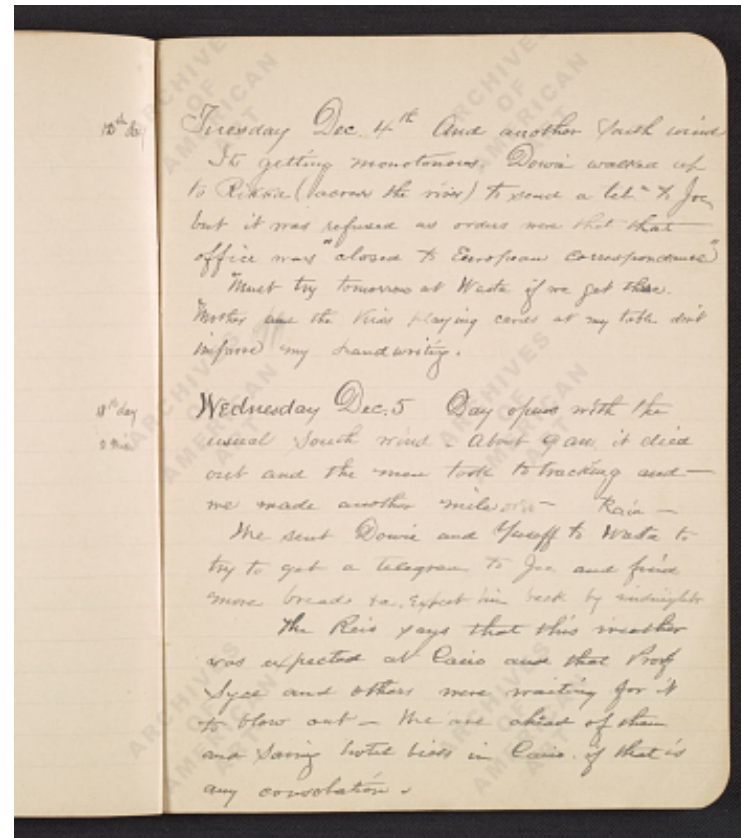 10th day
Tuesday Dec. 4th And another South wind
Its getting monotonous. Dowie walked up
to Rikka (across the river) to send a let" to Joe
but it was refused as orders were that that
office was "closed to European correspondence"
Must try tomorrow at Wasta if we get there.
Mother and the Kids playing cards at my table don't
improve my handwriting.
11th day
2 mile
Wednesday Dec. 5 Day opens with the
usual South wind. About 9 am it died
out and the men took to tracking and
we made another mile or so - Rain -
We sent Dowie and Yusoff to Wasta to
try to get a telegram to Joe and find
more bread &a. Expect him back by midnight
The Reis says that this weather
was expected at Cairo and that Prof
Syce and others were waiting for it
to blow out - We are ahead of them
and saving hotel bills in Cairo if that is
any consolation.
ARCHIVES
OF
AMERICAN
ART